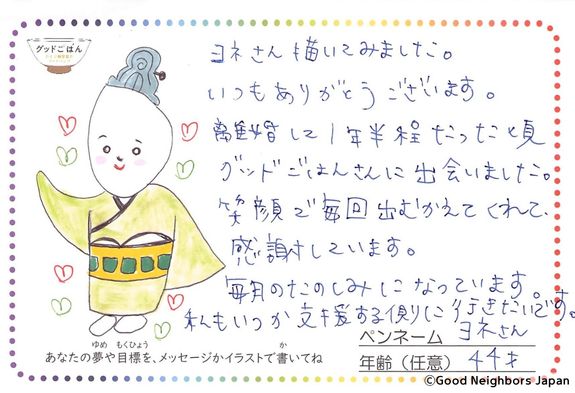 グッドごはん
ヨネさん描いてみました。
いつもありがとうございます。
離婚して1年半程たった頃
グッドごはんさんに出会いました。
笑顔で毎回出むかえてくれて、
感謝しています。
毎月のたのしみになっています。
私もいつか支援する側に行きたいです。
ペンネーム ヨネさん
ゆめ もくひょう か
あなたの夢や目標を、メッセージかイラストで書いてね
年齢（任意） 44才
©Good Neighbors Japan